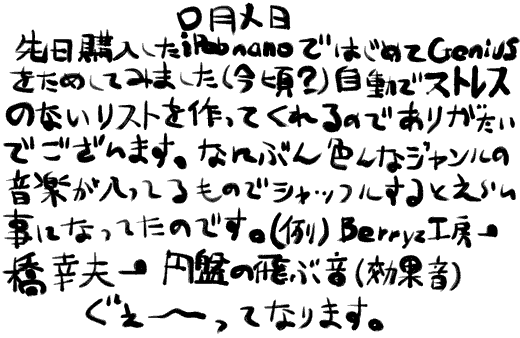 〇月×日
先日購入したiPod nanoではじめてGenius
をためしてみました(今頃?)自動でストレス
のないリストを作ってくれるのでありがたい
でございます。なにぶん色んなジャンルの
音楽が入ってるものでシャッフルするとえらい
事になってたのです。(例)Berryz工房→
橋幸夫→円盤の飛ぶ音(効果音)
ぐえ〜ってなります。